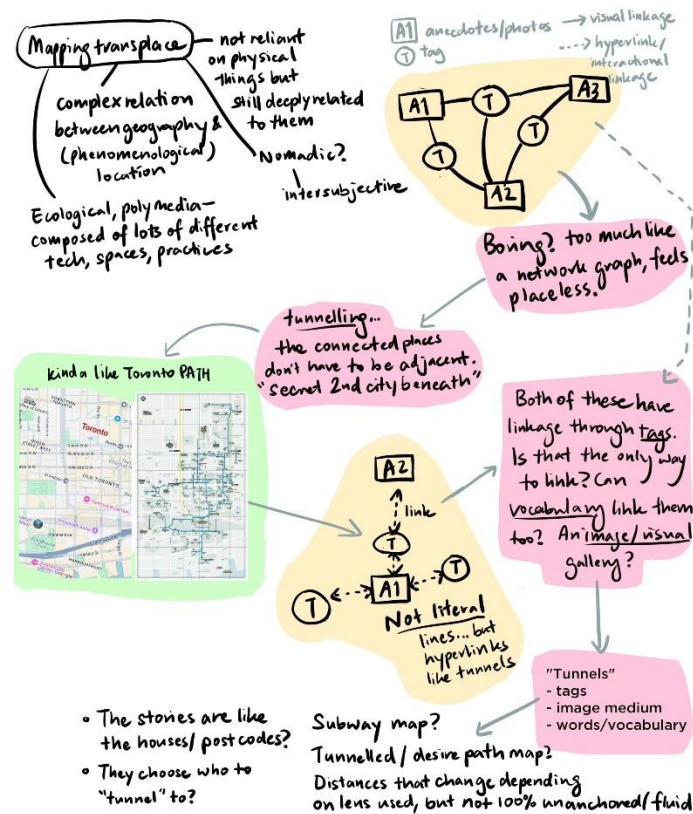 Mapping transplace
not reliant
on physical
things but
still deeply related
to them
complex relation
between geography &
(phenomenological)
location
Nomadic?
intersubjective
Ecological, polymedia-
composed of lots of different
tech, spaces, practices
A1 anecdotes/photos
T tag
visual
linkage
hyperlink/
interactional
linkage
A1
T
A3
T
T
A2
Boring? too much like
a network graph, feels
placeless.
tunnelling...
the connected places
don't have to be adjacent.
"secret 2nd city beneath"
kinda like Toronto PATH
Toronto
OLD TORONTO
Both of these have
linkage through tags.
Is that the only way
to link? Can
vocabulary link them
too? An image/visual
gallery?
A2
link
T
T
A1
T
Not literal
lines... but
hyperlinks
like tunnels
"Tunnels"
- tags
- image medium
- words/vocabulary
• The stories are like
the houses/postcodes?
• They choose who to
"tunnel" to?
Subway map?
Tunnelled/desire path map?
Distances that change depending
on lens used, but not 100% unanchored/fluid